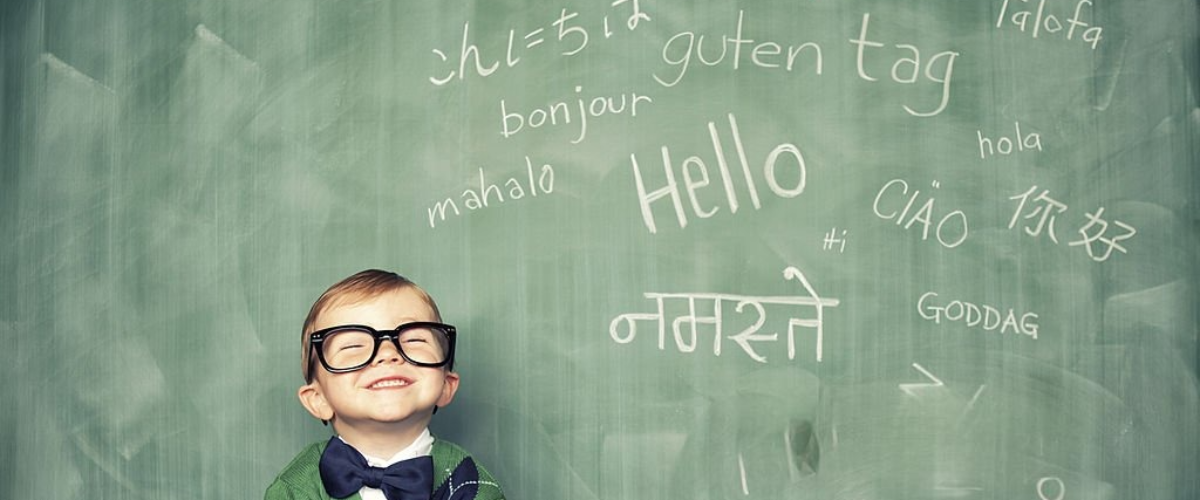 こんにちは
guten tag
talofa
bonjour
hola
mahalo
Hello
CIÄO
你好
Hi
नमस्ते
GODDAG